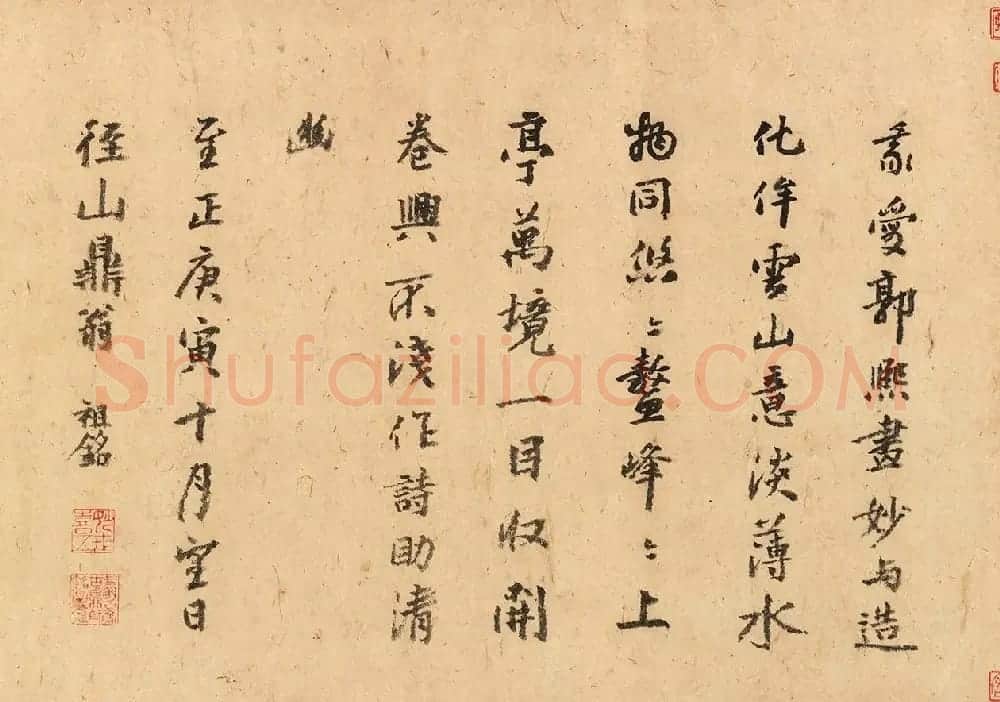 我愛郭熙畫妙與造
化侔雲山意淡薄水
物同悠〻鰲峰〻上
亭萬境一目收開
卷興不淺作詩助清
幽
至正庚寅十月望日
徑山鼎翁 祖銘
Shufaziliao.COM